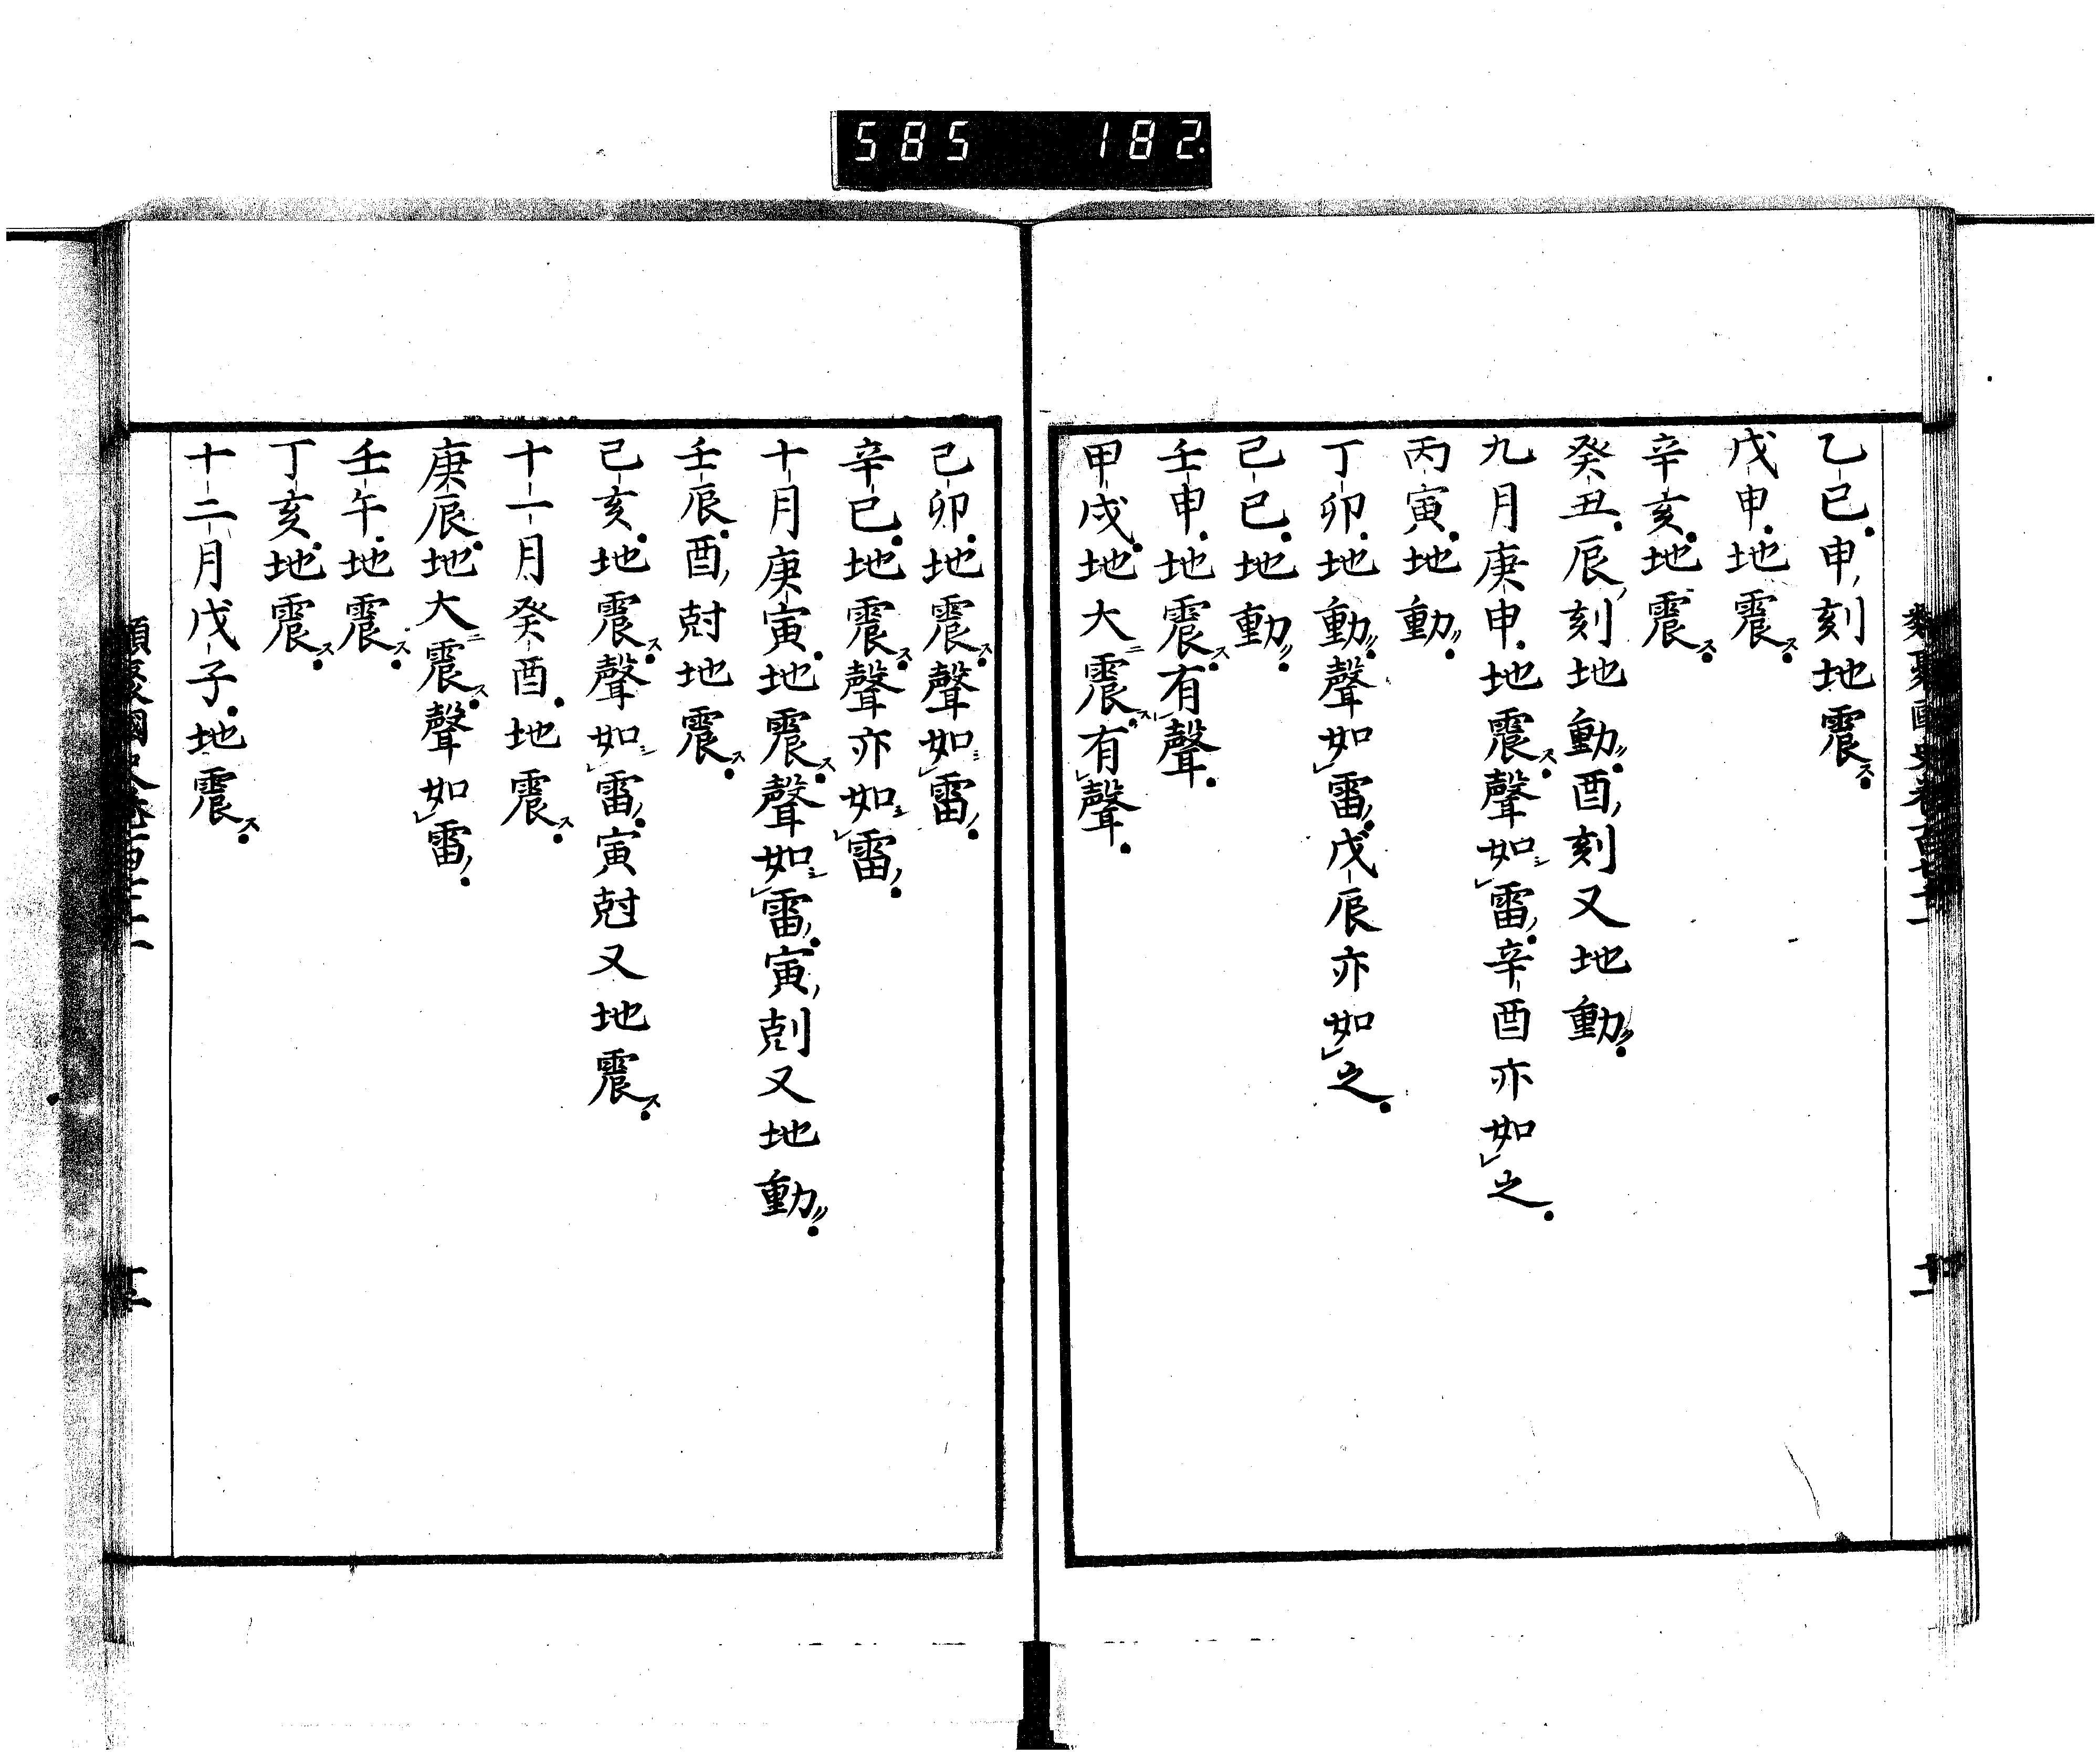 585 182
乙巳申刻地震ス
戊申地震ス
辛亥地震ス
癸丑辰刻地動酉刻又地動
九月庚申地震ス聲如雷辛酉亦如之
丙寅地動
丁卯地動聲如雷戊辰亦如之
己巳地動
壬申地震ス有聲
甲戌地大ニ震ス有聲
己卯地震ス聲如雷
辛巳地震ス聲亦如雷
十月庚寅地震ス聲如雷寅剋又地動
壬辰酉尅地震ス
己亥地震ス聲如雷寅尅又地震ス
十一月癸酉地震ス
庚辰地大ニ震ス聲如雷
壬午地震ス
丁亥地震ス
十二月戊子地震ス